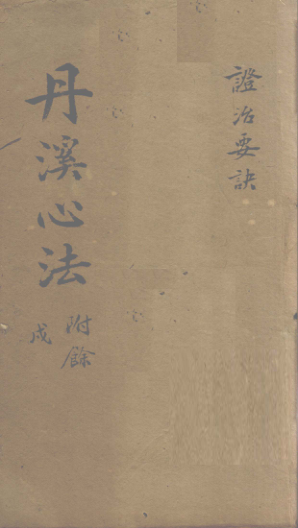 證治要訣
丹溪心法
附餘
戍